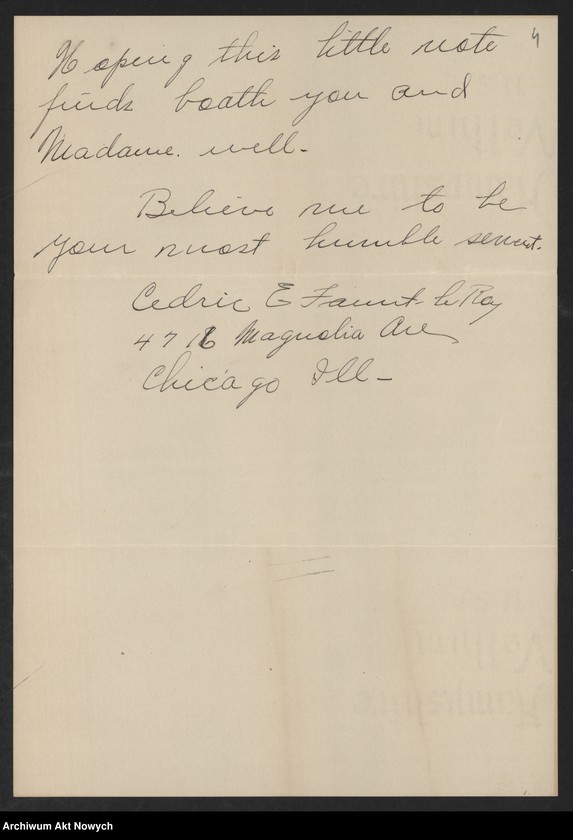 4
Hoping this little note
finds boath you and
Madame. well-
Believe me to be
your most humble servent.
Cedric E Faunt-le Roy
4716 Magnolia Ave
Chicago Ill-
Archiwum Akt Nowych